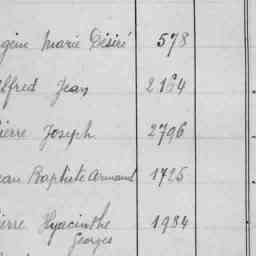 gène Marie Désiré 578
lfred Jean 2164
ierre Joseph 2796
ean Baptiste Armand 1725
ierre Hyacinthe 1984
Georges